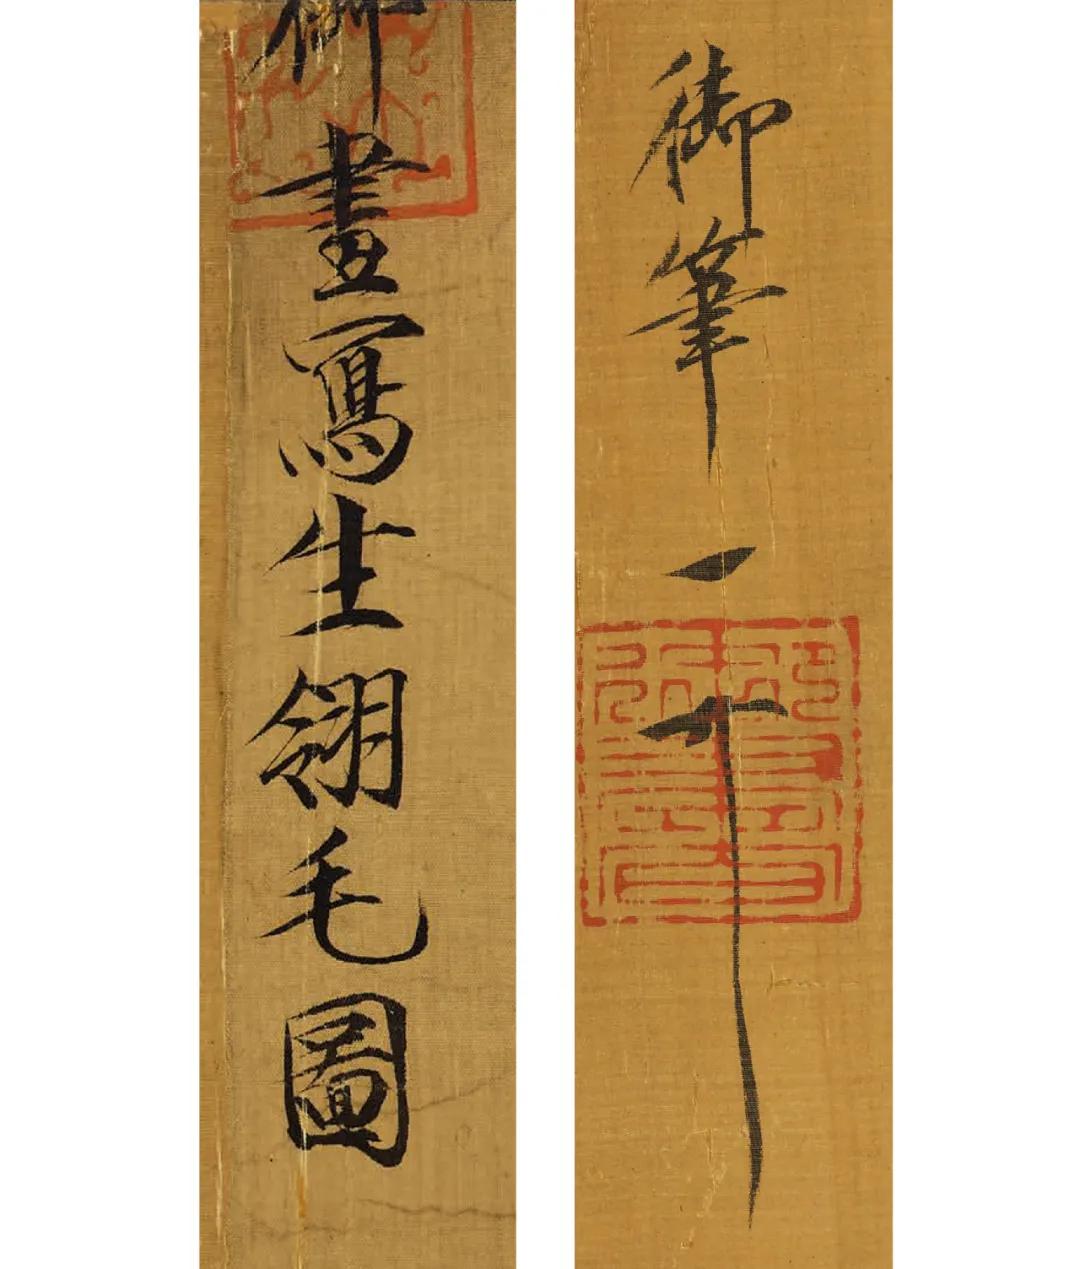 御畫寫生翎毛圖
御筆